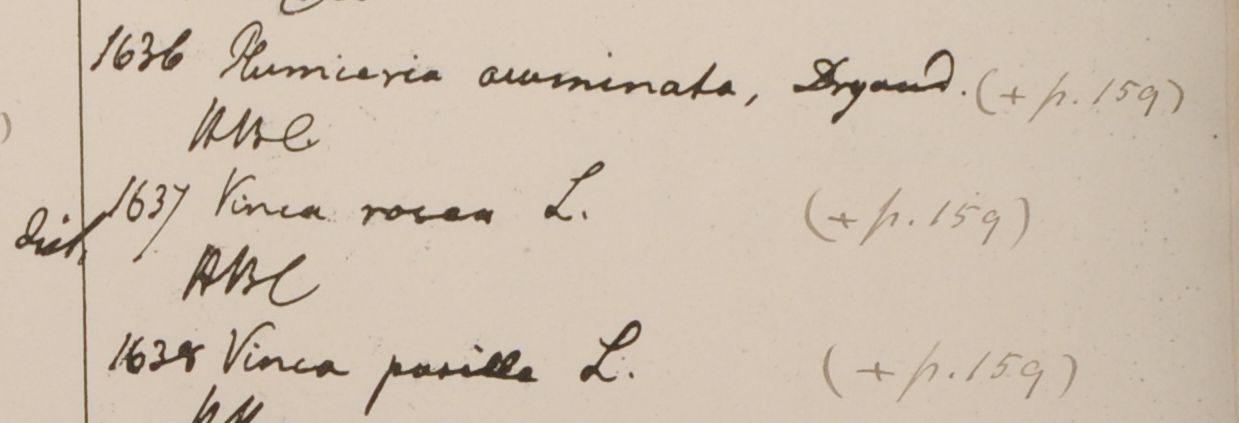 1636 Plumieria acuminata, Dryand. (+ p. 159)
HBC
dist. 1637 Vinca rosea L. (+ p. 159)
HBC
1638 Vinca pusilla L. (+ p. 159)